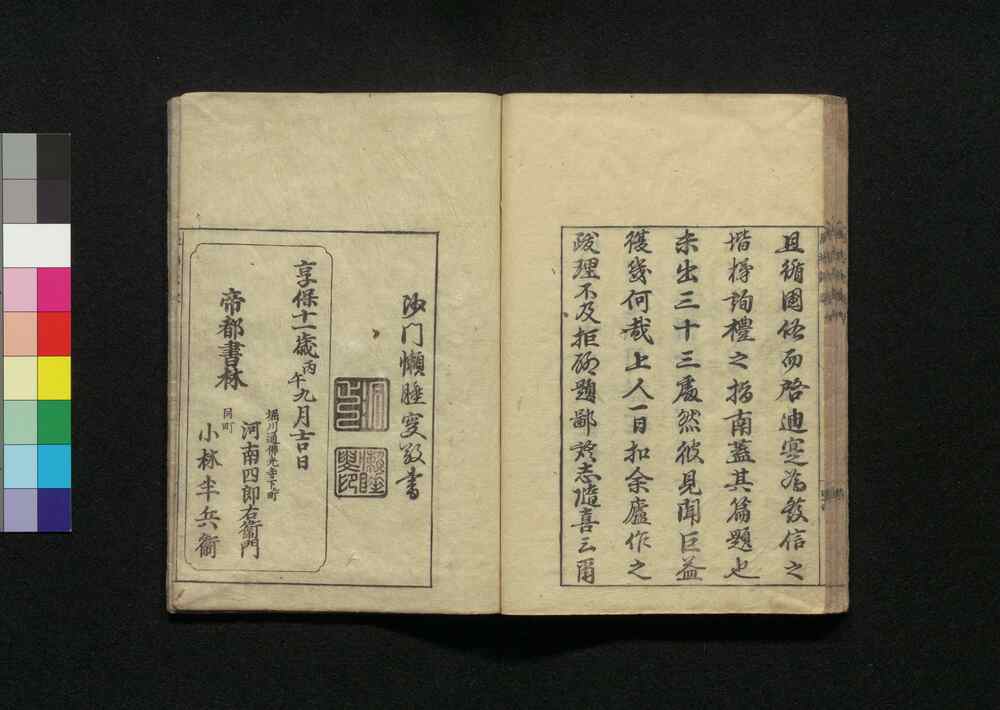 且循國俗而啓迪寔為發信之
堦樽詢禮之指南蓋其篇題也
未出三十三處然彼見聞巨益
獲幾何哉上人一日扣余廬作之
跋理不及拒題鄙於志隨喜云爾
沙門懶睡叟敬書
享保十一歳丙午九月吉日
帝都書林
堀川通佛光寺下町
河南四郎右衛門
同町
小林半兵衛